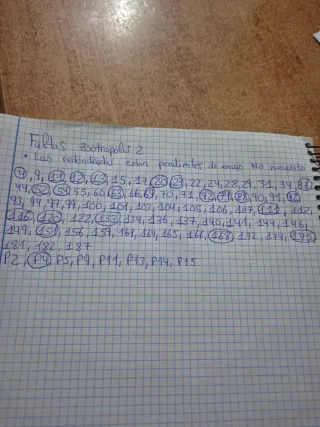 Faltas Zootropolis 2
• Las redondeadas estan pendientes de envio No necesito
4, 9, 11, 12, 13, 15, 17, 20, 21, 22, 24, 28, 29, 31, 34,
44, 52, 54, 55, 60, 63, 66, 69, 70, 71, 90, 91,
93, 94, 97, 99, 100, 101, 104, 105, 106, 107, 111, 112,
116, 120, 122, 133, 134, 136, 137, 140, 141, 144, 146,
149, 151, 156, 159, 161, 164, 165, 166, 168, 172, 174, 175,
181, 182, 187
P2, P4, P5, P9, P11, P13, P14, P15